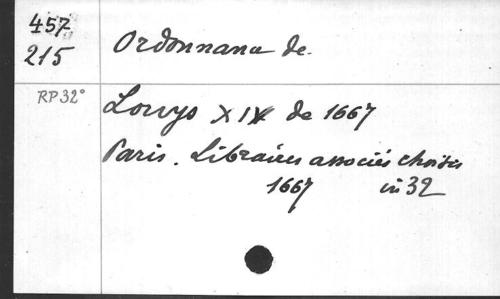 457
215
Ordonnance de
RP 32°
Louys XIV de 1667
Paris. Libraires associés choisis
1667 in 32